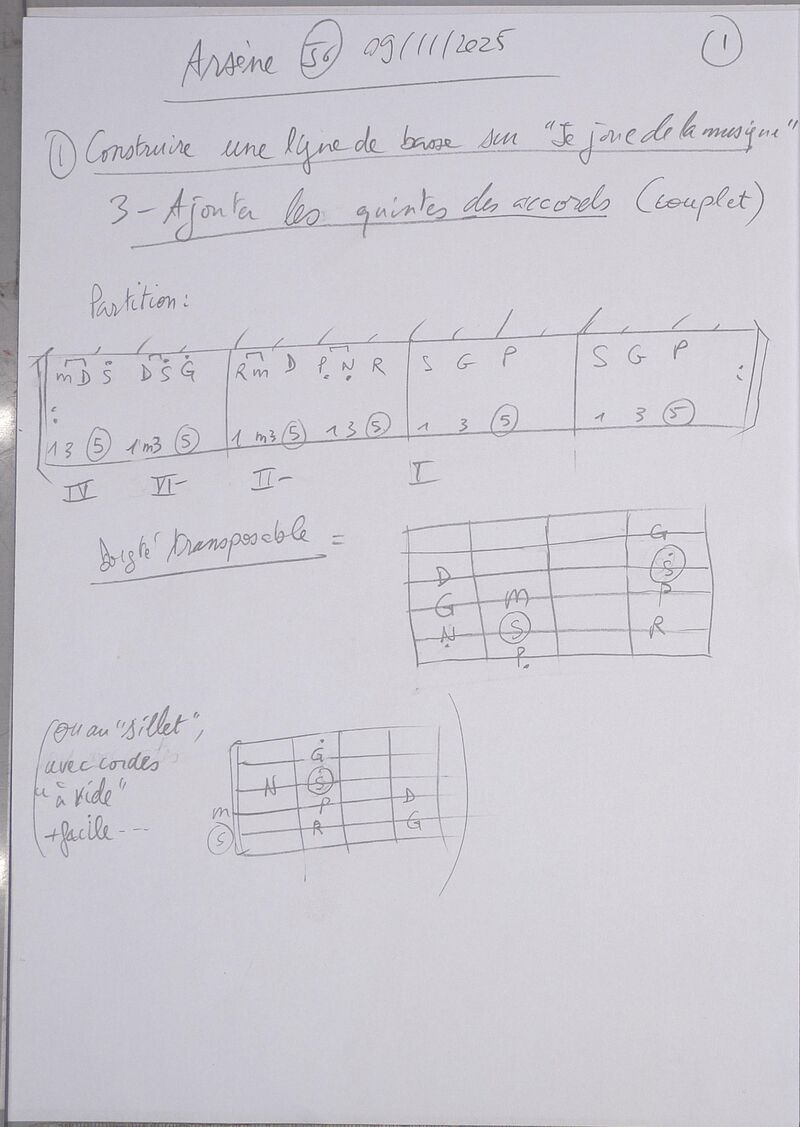 Arsène 56 09/11/2025 1
1 Construire une ligne de basse sur "Je joue de la musique"
3 - Ajouter les quintes des accords (couplet)
Partition :
m D Ṡ D Ṡ Ġ R m D P. Ṇ R S G P S G P
1 3 5 1 m3 5 1 m3 5 1 3 5 1 3 5 1 3 5
IV VI- II- I
Doigté transposable =
G
D Ṡ
G m P
Ṇ S R
P.
(ou au "sillet",
avec cordes
"à vide"
+ facile ---
Ġ
N Ṡ
m P D
S R G